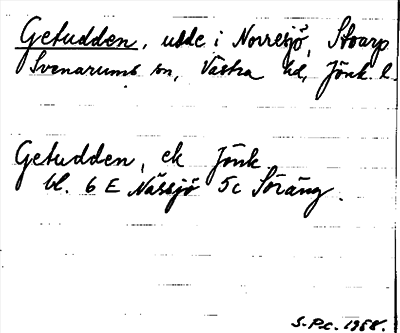 Getudden, udde i Norresjö, Stoarp
Svenarums sn, Västra hd, Jönk. l.
Getudden, ek Jönk
bl. 6 E Nässjö 5c Söräng.
S-P.c. 1958.